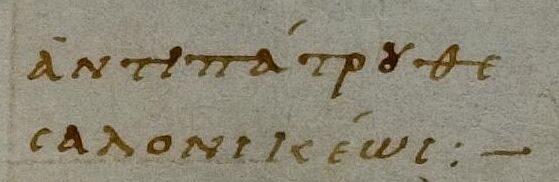 ἀντιπάτρου θε
σαλονικέωι: —